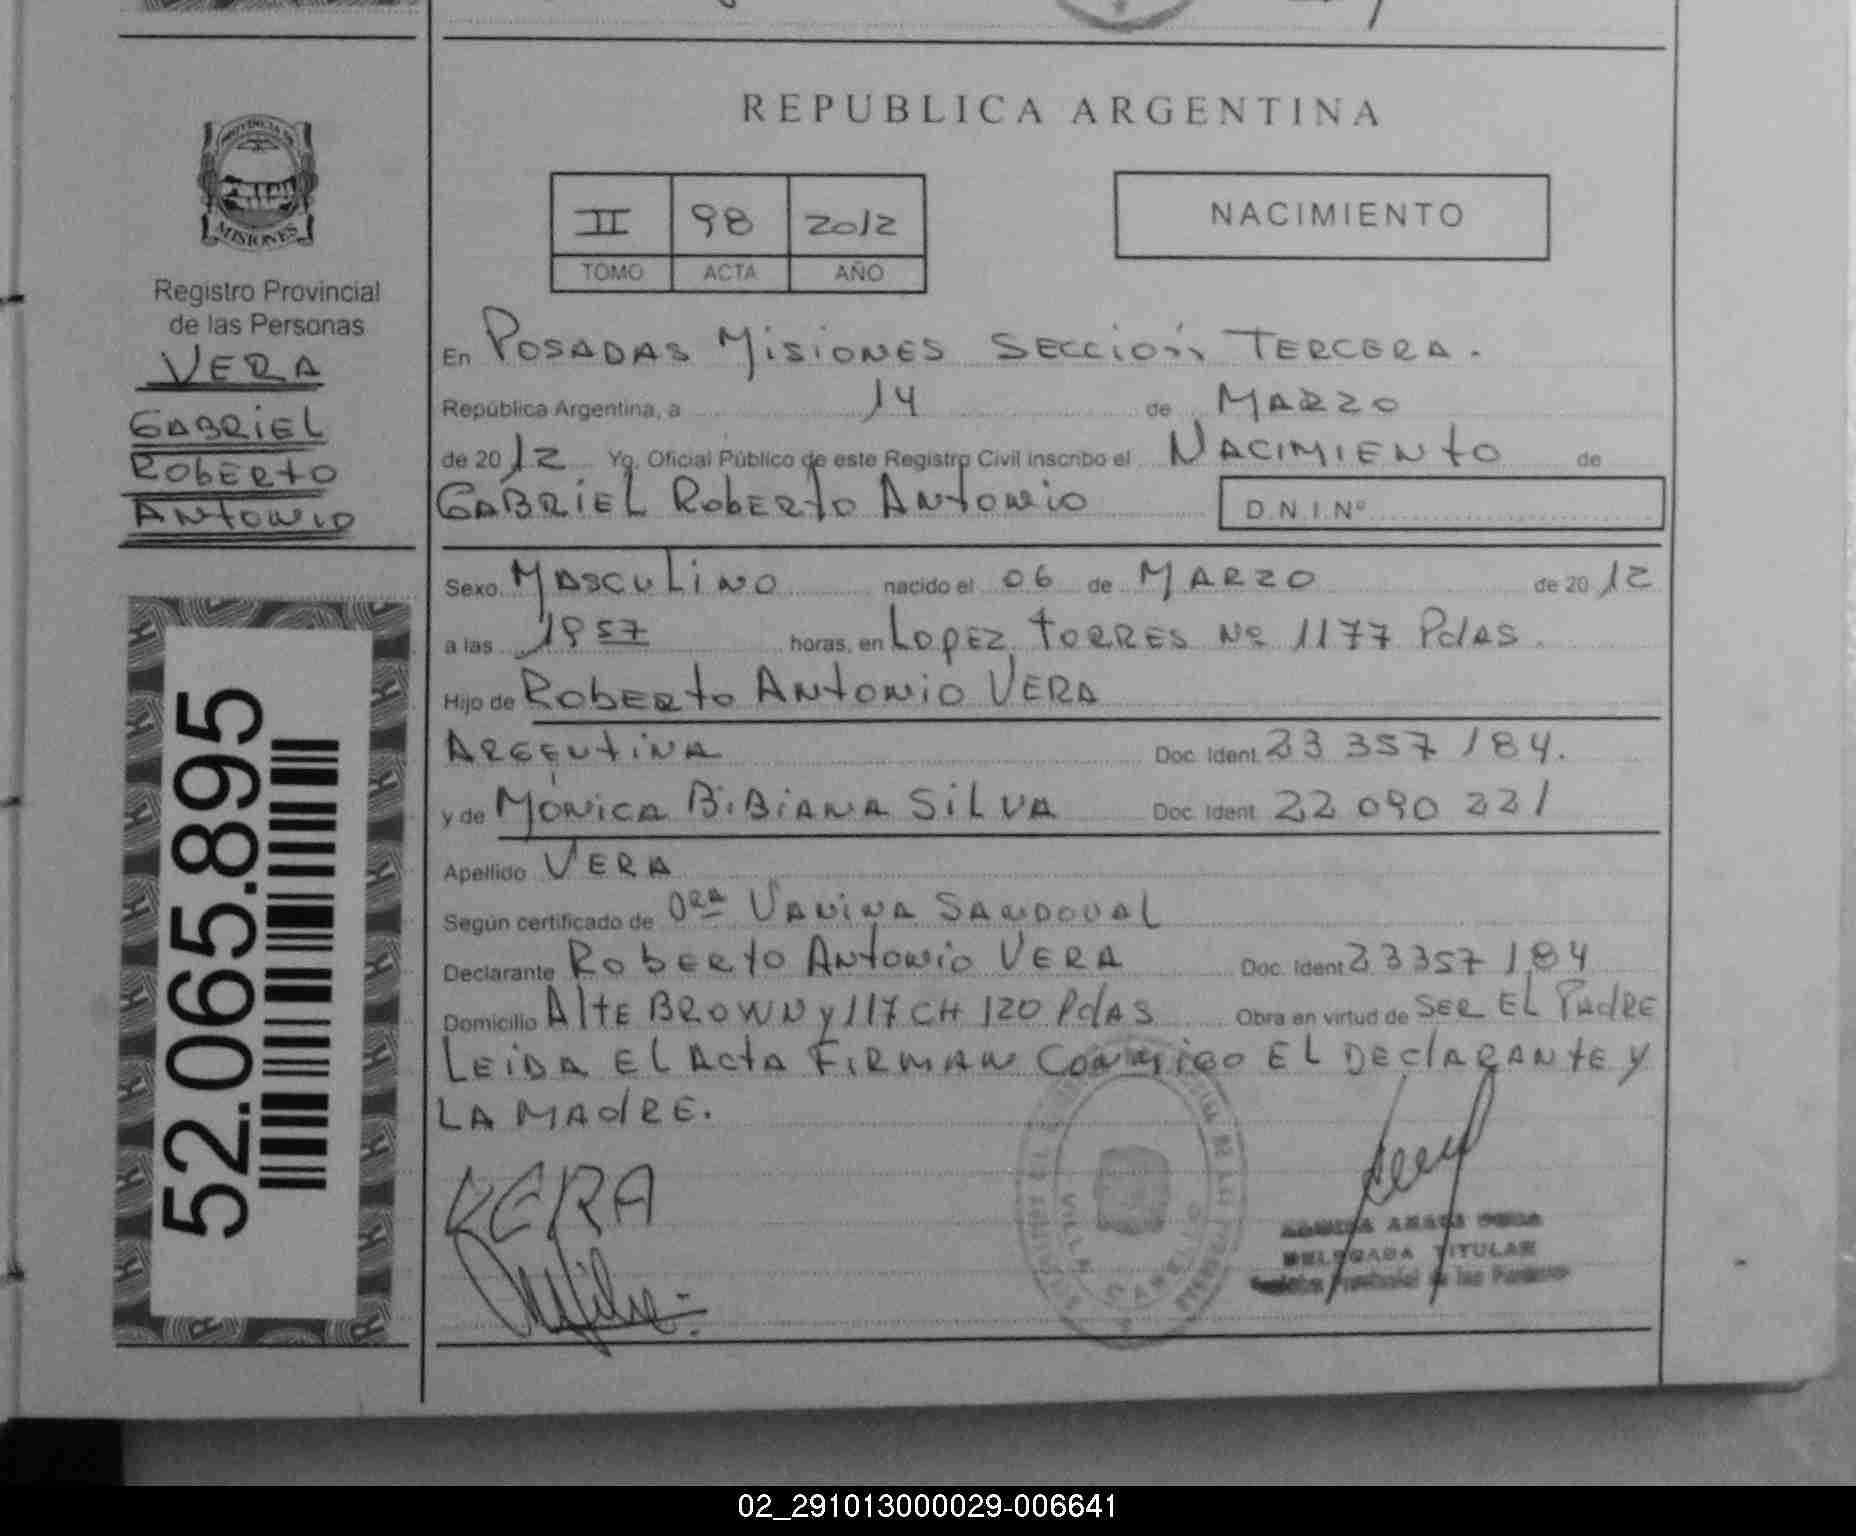 PROVINCIA DE
MISIONES
Registro Provincial
de las Personas
VERA
GABRIEL
ROBERTO
ANTONIO
52.065.895
REPUBLICA ARGENTINA
II 98 2012
TOMO ACTA AÑO
NACIMIENTO
En POSADAS MISIONES SECCIÓN TERCERA.
República Argentina, a 14 de MARZO
de 2012 Yo, Oficial Público de este Registro Civil inscribo el NACIMIENTO de
GABRIEL ROBERTO ANTONIO D.N.I.Nº
Sexo MASCULINO nacido el 06 de MARZO de 2012
a las 1957 horas, en LOPEZ TORRES Nº 1177 PdAS.
Hijo de ROBERTO ANTONIO VERA
ARGENTINA Doc. Ident. 23 357 184.
y de MÓNICA BIBIANA SILVA Doc. Ident. 22 090 221
Apellido VERA
Según certificado de DRA VANINA SANDOVAL
Declarante ROBERTO ANTONIO VERA Doc. Ident 23357 184
Domicilio AltE BROWN y 117 CH 120 PdAS Obra en virtud de SER EL PADRE
LEIDA EL ACTA FIRMAN CONMIGO EL DECLARANTE Y
LA MADRE.
VERA
VILLA CABELLO
DELEGADA TITULAR
Provincial de las Personas
02_291013000029-006641